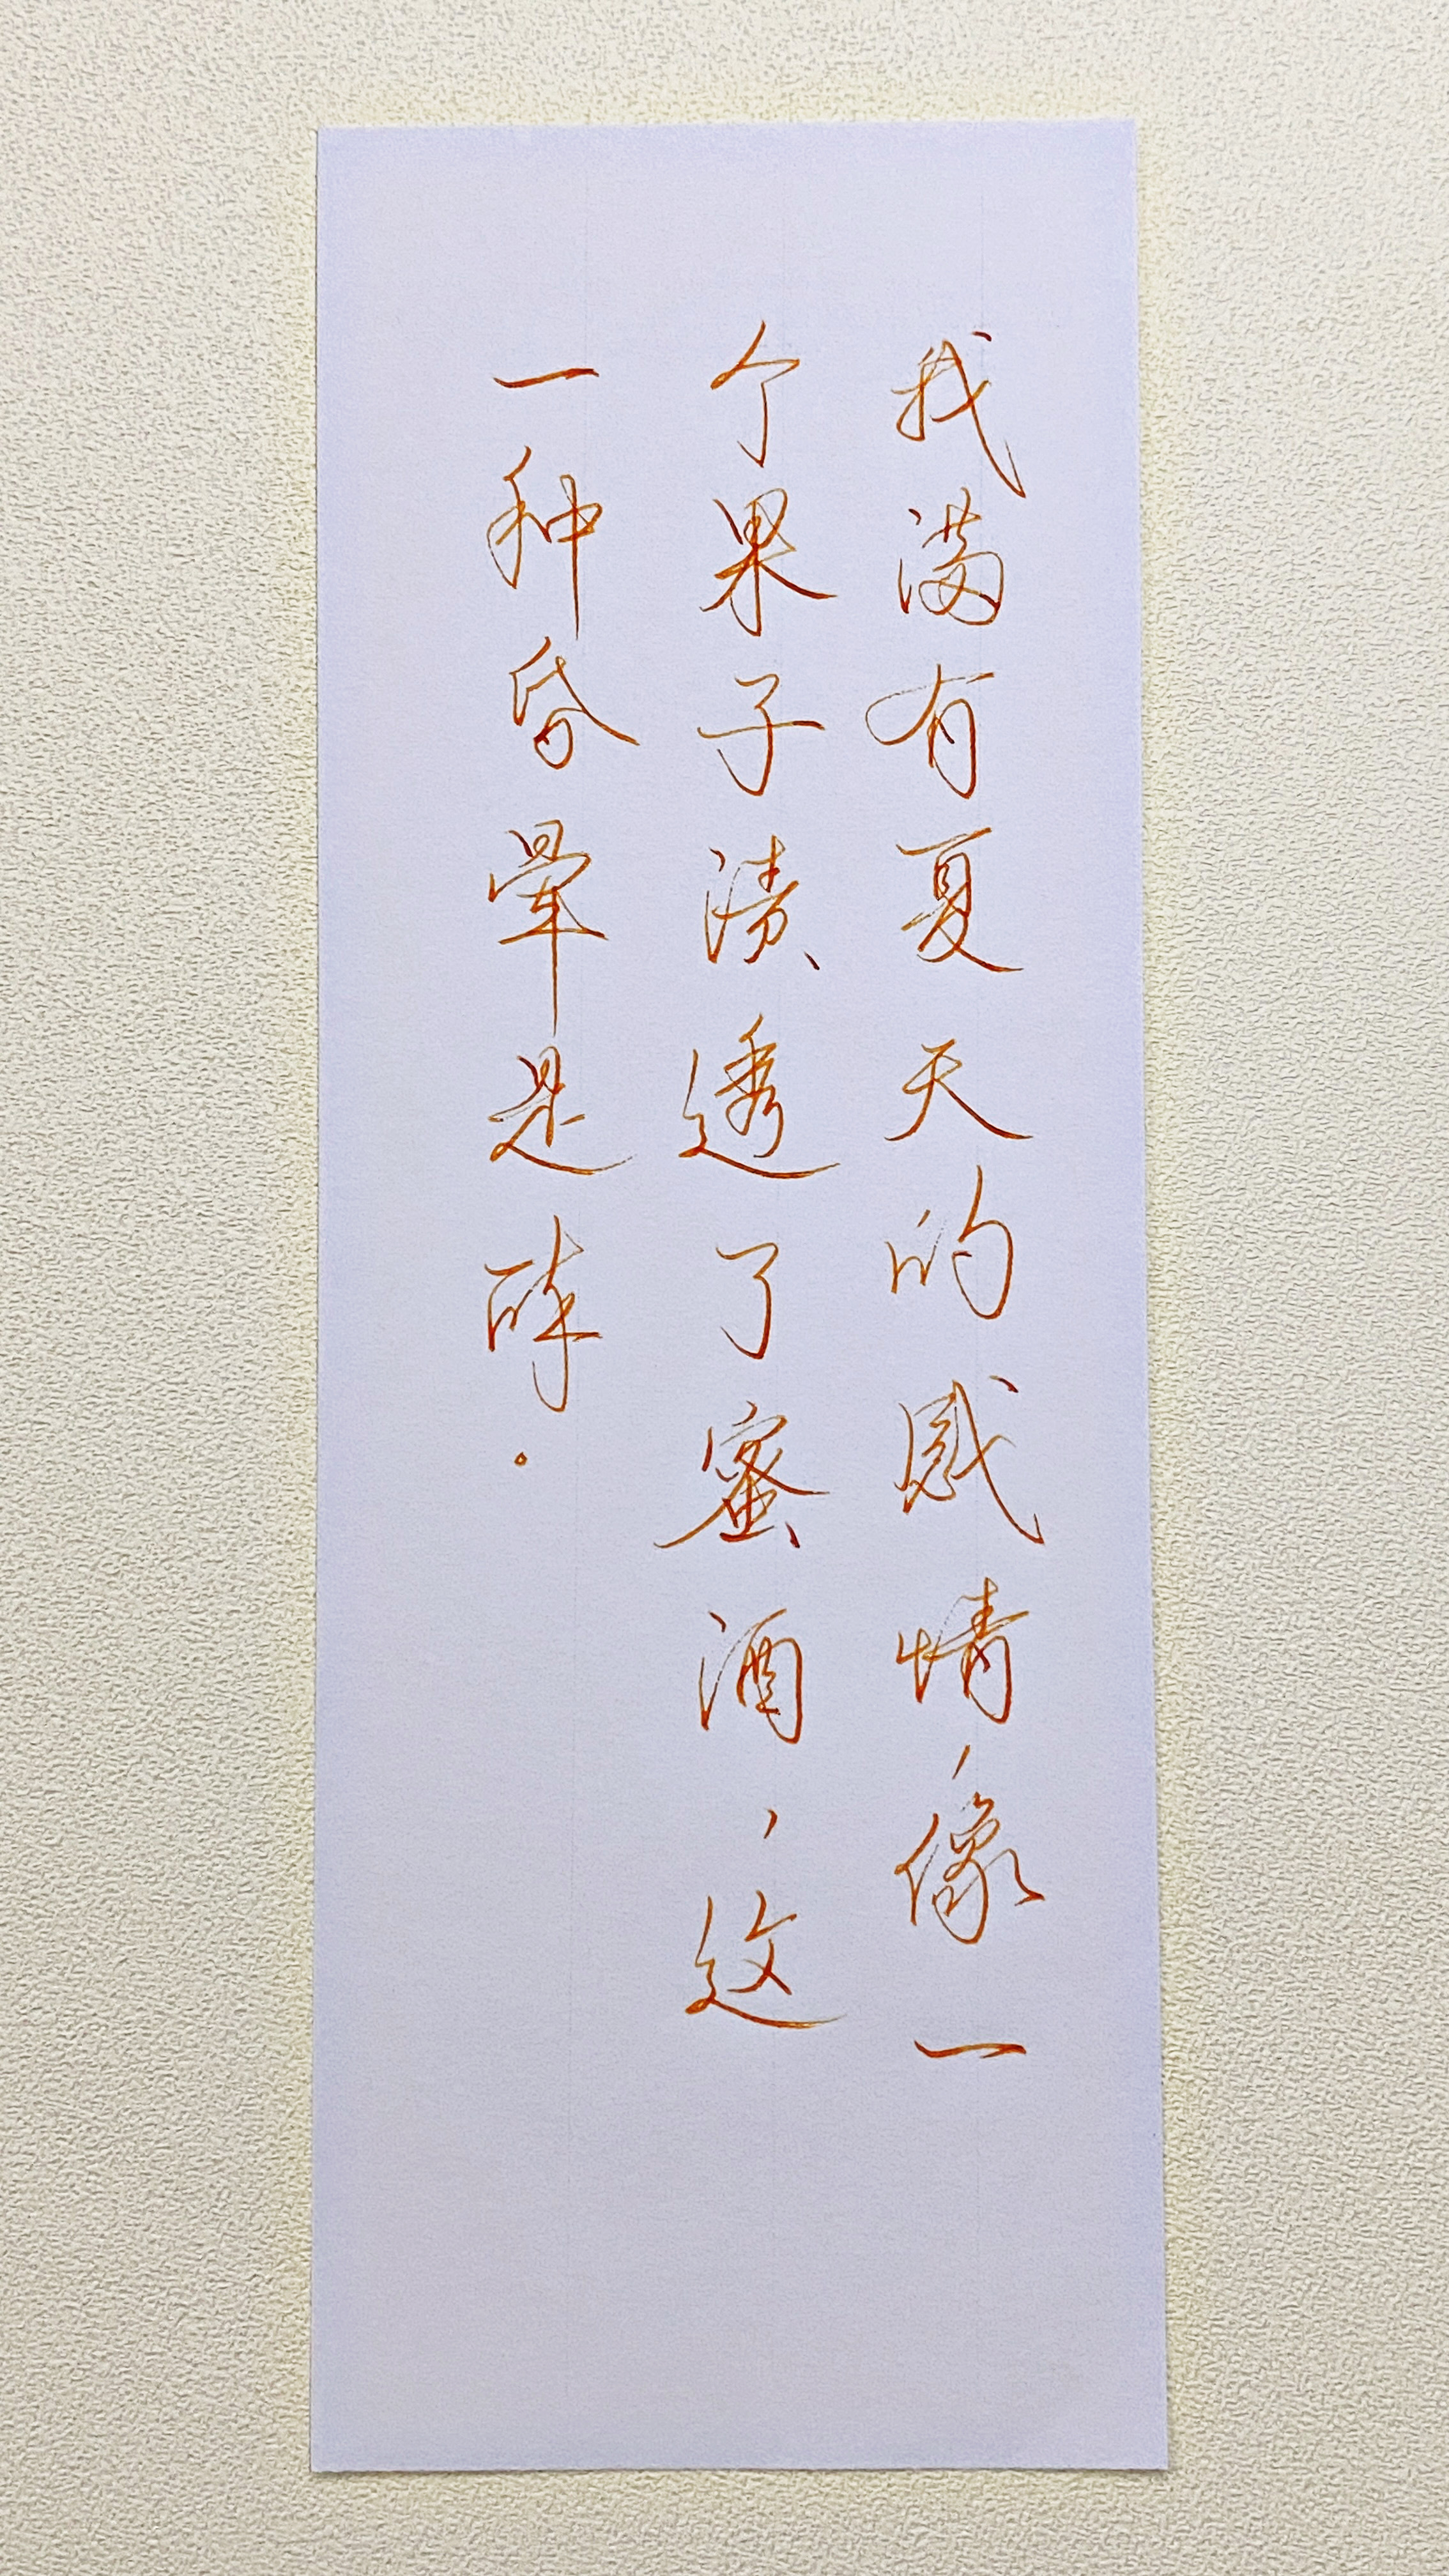 我满有夏天的感情，像一
个果子渍透了蜜酒，这
一种昏晕是醉。